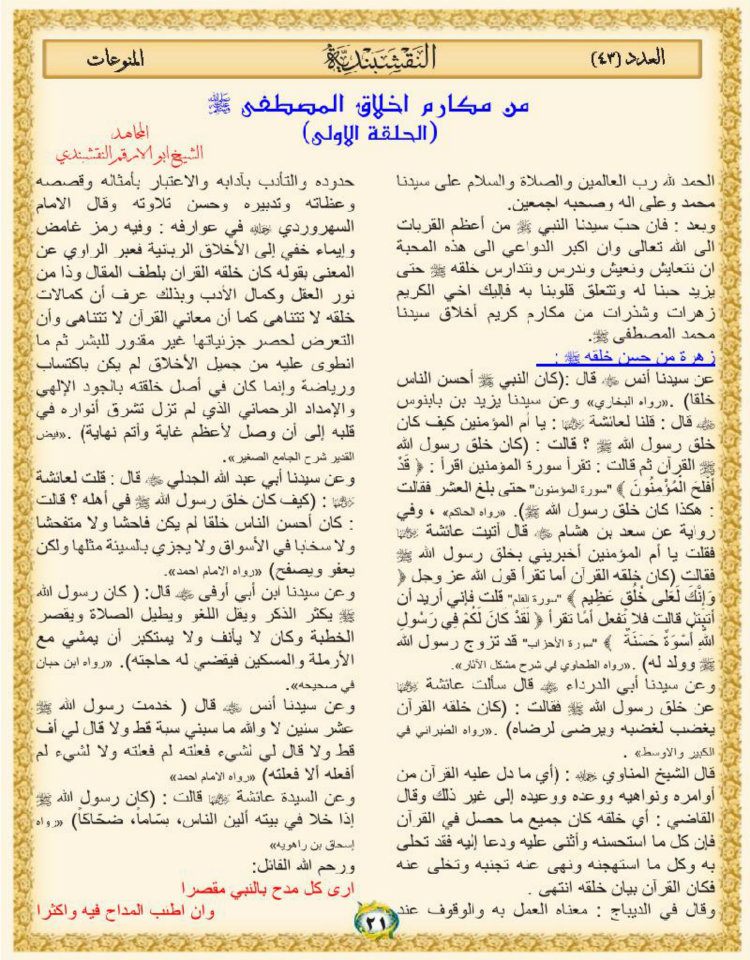 العدد (٤٣)
النقشبندية
المنوعات
من مكارم اخلاق المصطفى ﷺ
(الحلقة الاولى)
المجاهد
الشيخ ابو الارقم النقشبندي
الحمد لله رب العالمين والصلاة والسلام على سيدنا
محمد وعلى اله وصحبه اجمعين.
وبعد : فان حبّ سيدنا النبي ﷺ من أعظم القربات
الى الله تعالى وان اكبر الدواعي الى هذه المحبة
ان نتعايش ونعيش وندرس ونتدارس خلقه ﷺ حتى
يزيد حبنا له وتتعلق قلوبنا به فإليك اخي الكريم
زهرات وشذرات من مكارم كريم أخلاق سيدنا
محمد المصطفى ﷺ.
زهرة من حسن خلقه ﷺ :
عن سيدنا أنس ﷺ قال :(كان النبي ﷺ أحسن الناس
خلقا) .«رواه البخاري» وعن سيدنا يزيد بن بابنوس
قال : قلنا لعائشة : يا أم المؤمنين كيف كان
خلق رسول الله ﷺ ؟ قالت : (كان خلق رسول الله
ﷺ القرآن ثم قالت : تقرأ سورة المؤمنين اقرأ : ﴿ قَدْ
أَفْلَحَ الْمُؤْمِنُونَ ﴾ "سورة المؤمنون" حتى بلغ العشر فقالت
: هكذا كان خلق رسول الله ﷺ). «رواه الحاكم» ، وفي
رواية عن سعد بن هشام قال أتيت عائشة
فقلت يا أم المؤمنين أخبريني بخلق رسول الله ﷺ
فقالت (كان خلقه القرآن أما تقرأ قول الله عز وجل ﴿
وَإِنَّكَ لَعَلَى خُلُقٍ عَظِيمٍ ﴾ "سورة القلم" قلت فإني أريد أن
أتبتل قالت فلا تفعل أمَا تقرأ ﴿ لَقَدْ كَانَ لَكُمْ فِي رَسُولِ
اللَّهِ أُسْوَةٌ حَسَنَةٌ ﴾ "سورة الأحزاب" قد تزوج رسول الله
ﷺ وولد له) .«رواه الطحاوي في شرح مشكل الآثار».
وعن سيدنا أبي الدرداء قال سألت عائشة
عن خلق رسول الله ﷺ فقالت : (كان خلقه القرآن
يغضب لغضبه ويرضى لرضاه) .«رواه الطبراني في
الكبير والاوسط» .
قال الشيخ المناوي : (أي ما دل عليه القرآن من
أوامره ونواهيه ووعده ووعيده إلى غير ذلك وقال
القاضي : أي خلقه كان جميع ما حصل في القرآن
فإن كل ما استحسنه وأثنى عليه ودعا إليه فقد تحلى
به وكل ما استهجنه ونهى عنه تجنبه وتخلى عنه
فكان القرآن بيان خلقه انتهى .
وقال في الديباج : معناه العمل به والوقوف عند
حدوده والتأدب بآدابه والاعتبار بأمثاله وقصصه
وعظاته وتدبيره وحسن تلاوته وقال الامام
السهروردي في عوارفه : وفيه رمز غامض
وإيماء خفي إلى الأخلاق الربانية فعبر الراوي عن
المعنى بقوله كان خلقه القرآن بلطف المقال وذا من
نور العقل وكمال الأدب وبذلك عرف أن كمالات
خلقه لا تتناهى كما أن معاني القرآن لا تتناهى وأن
التعرض لحصر جزئياتها غير مقدور للبشر ثم ما
انطوى عليه من جميل الأخلاق لم يكن باكتساب
ورياضة وإنما كان في أصل خلقته بالجود الإلهي
والإمداد الرحماني الذي لم تزل تشرق أنواره في
قلبه إلى أن وصل لأعظم غاية وأتم نهاية) .«فيض
القدير شرح الجامع الصغير».
وعن سيدنا أبي عبد الله الجدلي قال : قلت لعائشة
: (كيف كان خلق رسول الله ﷺ في أهله ؟ قالت
: كان أحسن الناس خلقا لم يكن فاحشا ولا متفحشا
ولا سخابا في الأسواق ولا يجزي بالسيئة مثلها ولكن
يعفو ويصفح) «رواه الامام احمد».
وعن سيدنا ابن أبي أوفى قال: ( كان رسول الله
ﷺ يكثر الذكر ويقل اللغو ويطيل الصلاة ويقصر
الخطبة وكان لا يأنف ولا يستكبر أن يمشي مع
الأرملة والمسكين فيقضي له حاجته). «رواه ابن حبان
في صحيحه».
وعن سيدنا أنس قال ( خدمت رسول الله ﷺ
عشر سنين لا والله ما سبني سبة قط ولا قال لي أف
قط ولا قال لي لشيء فعلته لم فعلته ولا لشيء لم
أفعله ألا فعلته) «رواه الامام احمد»
وعن السيدة عائشة قالت : (كان رسول الله ﷺ
إذا خلا في بيته ألين الناس، بسّاماً، ضحّاكاً) «رواه
إسحاق بن راهويه»
ورحم الله القائل:
ارى كل مدح بالنبي مقصرا
وان اطنب المداح فيه واكثرا
٢١